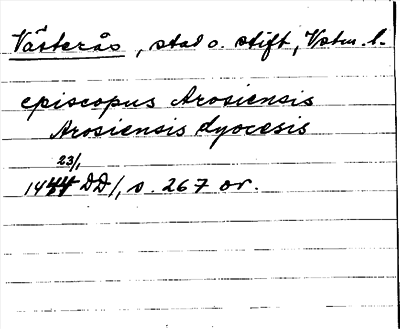 Västerås, stad o. stift, Vstm. l.
episcopus Arosiensis
Arosiensis dyocesis
23/1
1444 DD1, s. 267 or.